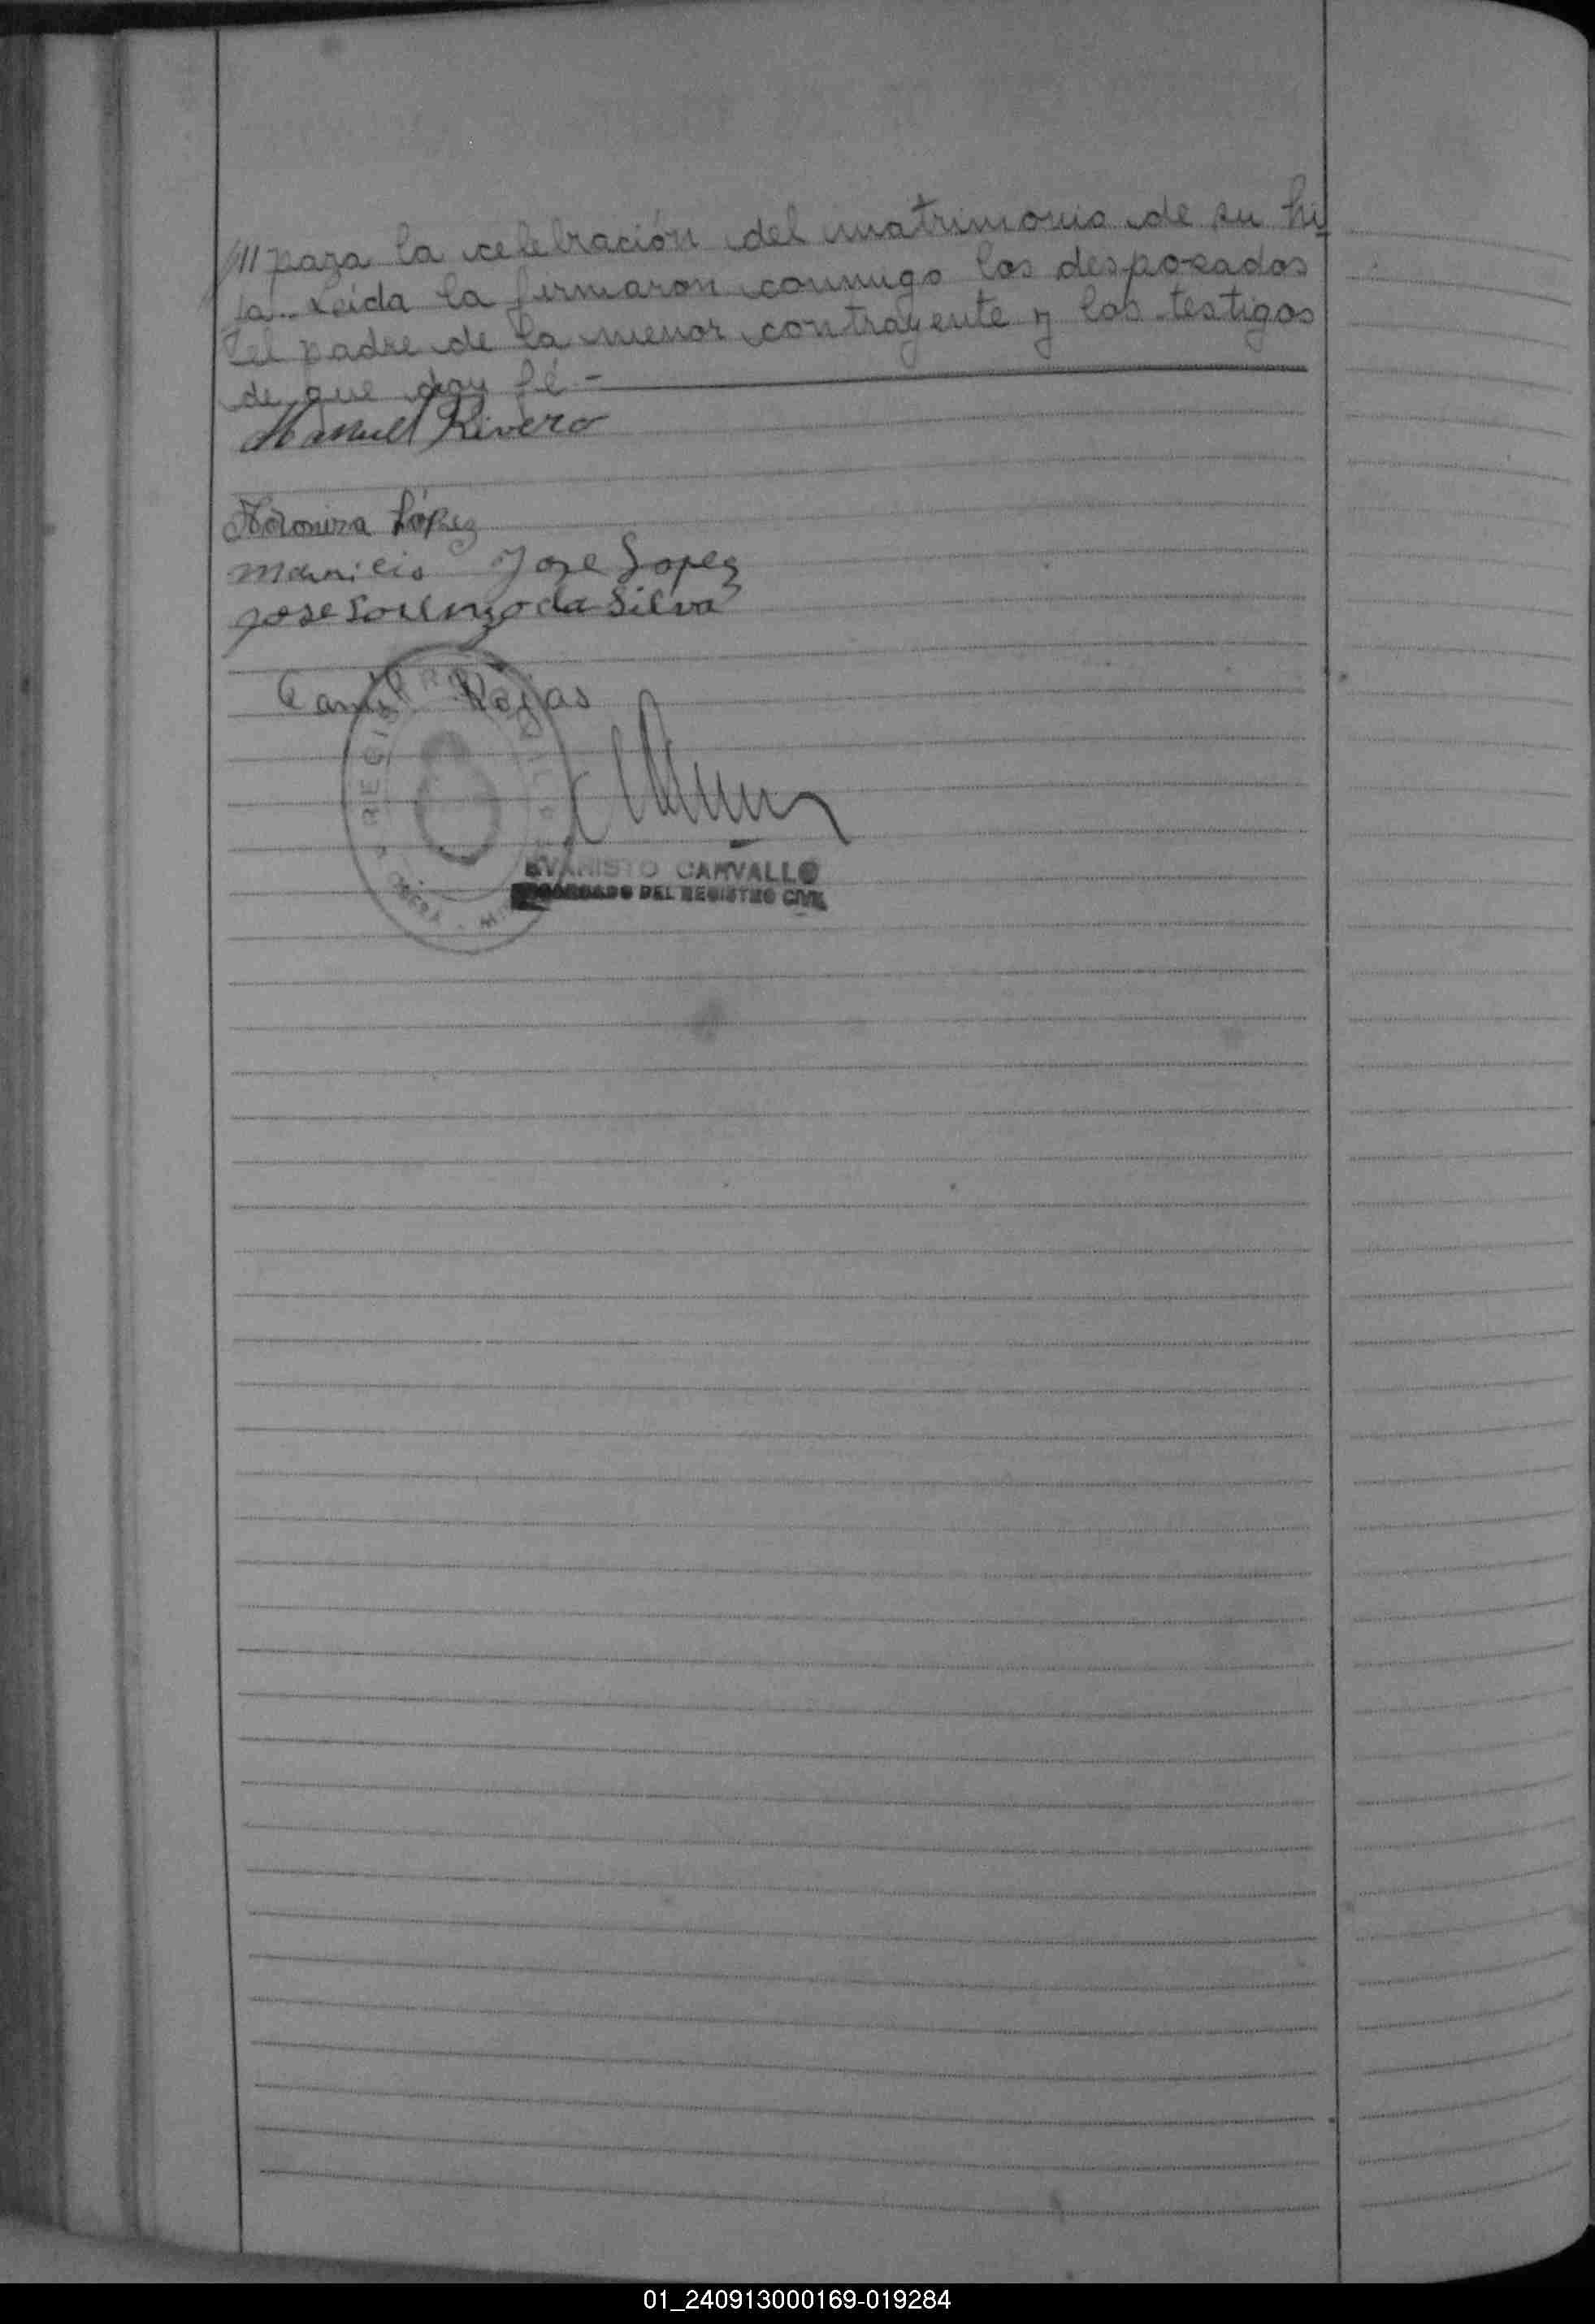 /// para la celebración del matrimonio de su hi
ja.. Leída la firmaron conmigo los desposados
el padre de la menor contrayente y los testigos
de que doy fé.-
Manuel Rivero
López
Mauricio Jose Lopez
Jose Lourenzo da Silva
Rojas
REGISTRO CIVIL
EVARISTO CARVALLO
ENCARGADO DEL REGISTRO CIVIL
01_240913000169-019284